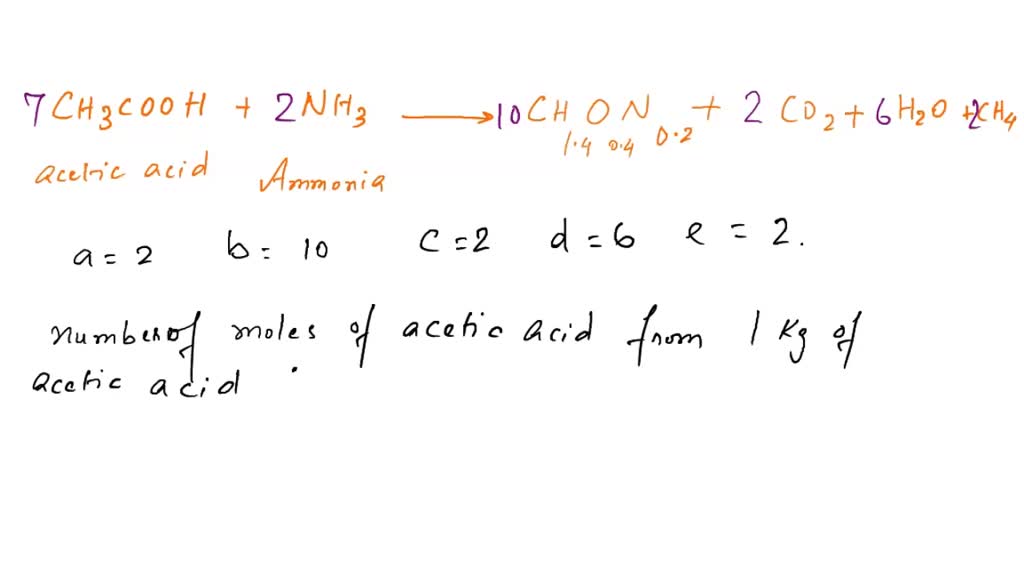 7CH3COOH + 2NH3 → 10CH1.4O0.4N0.2 + 2CO2 + 6H2O + 2CH4
acetic acid Ammonia
a = 2 b = 10 c = 2 d = 6 e = 2.
number of moles of acetic acid from 1 kg of
acetic acid .